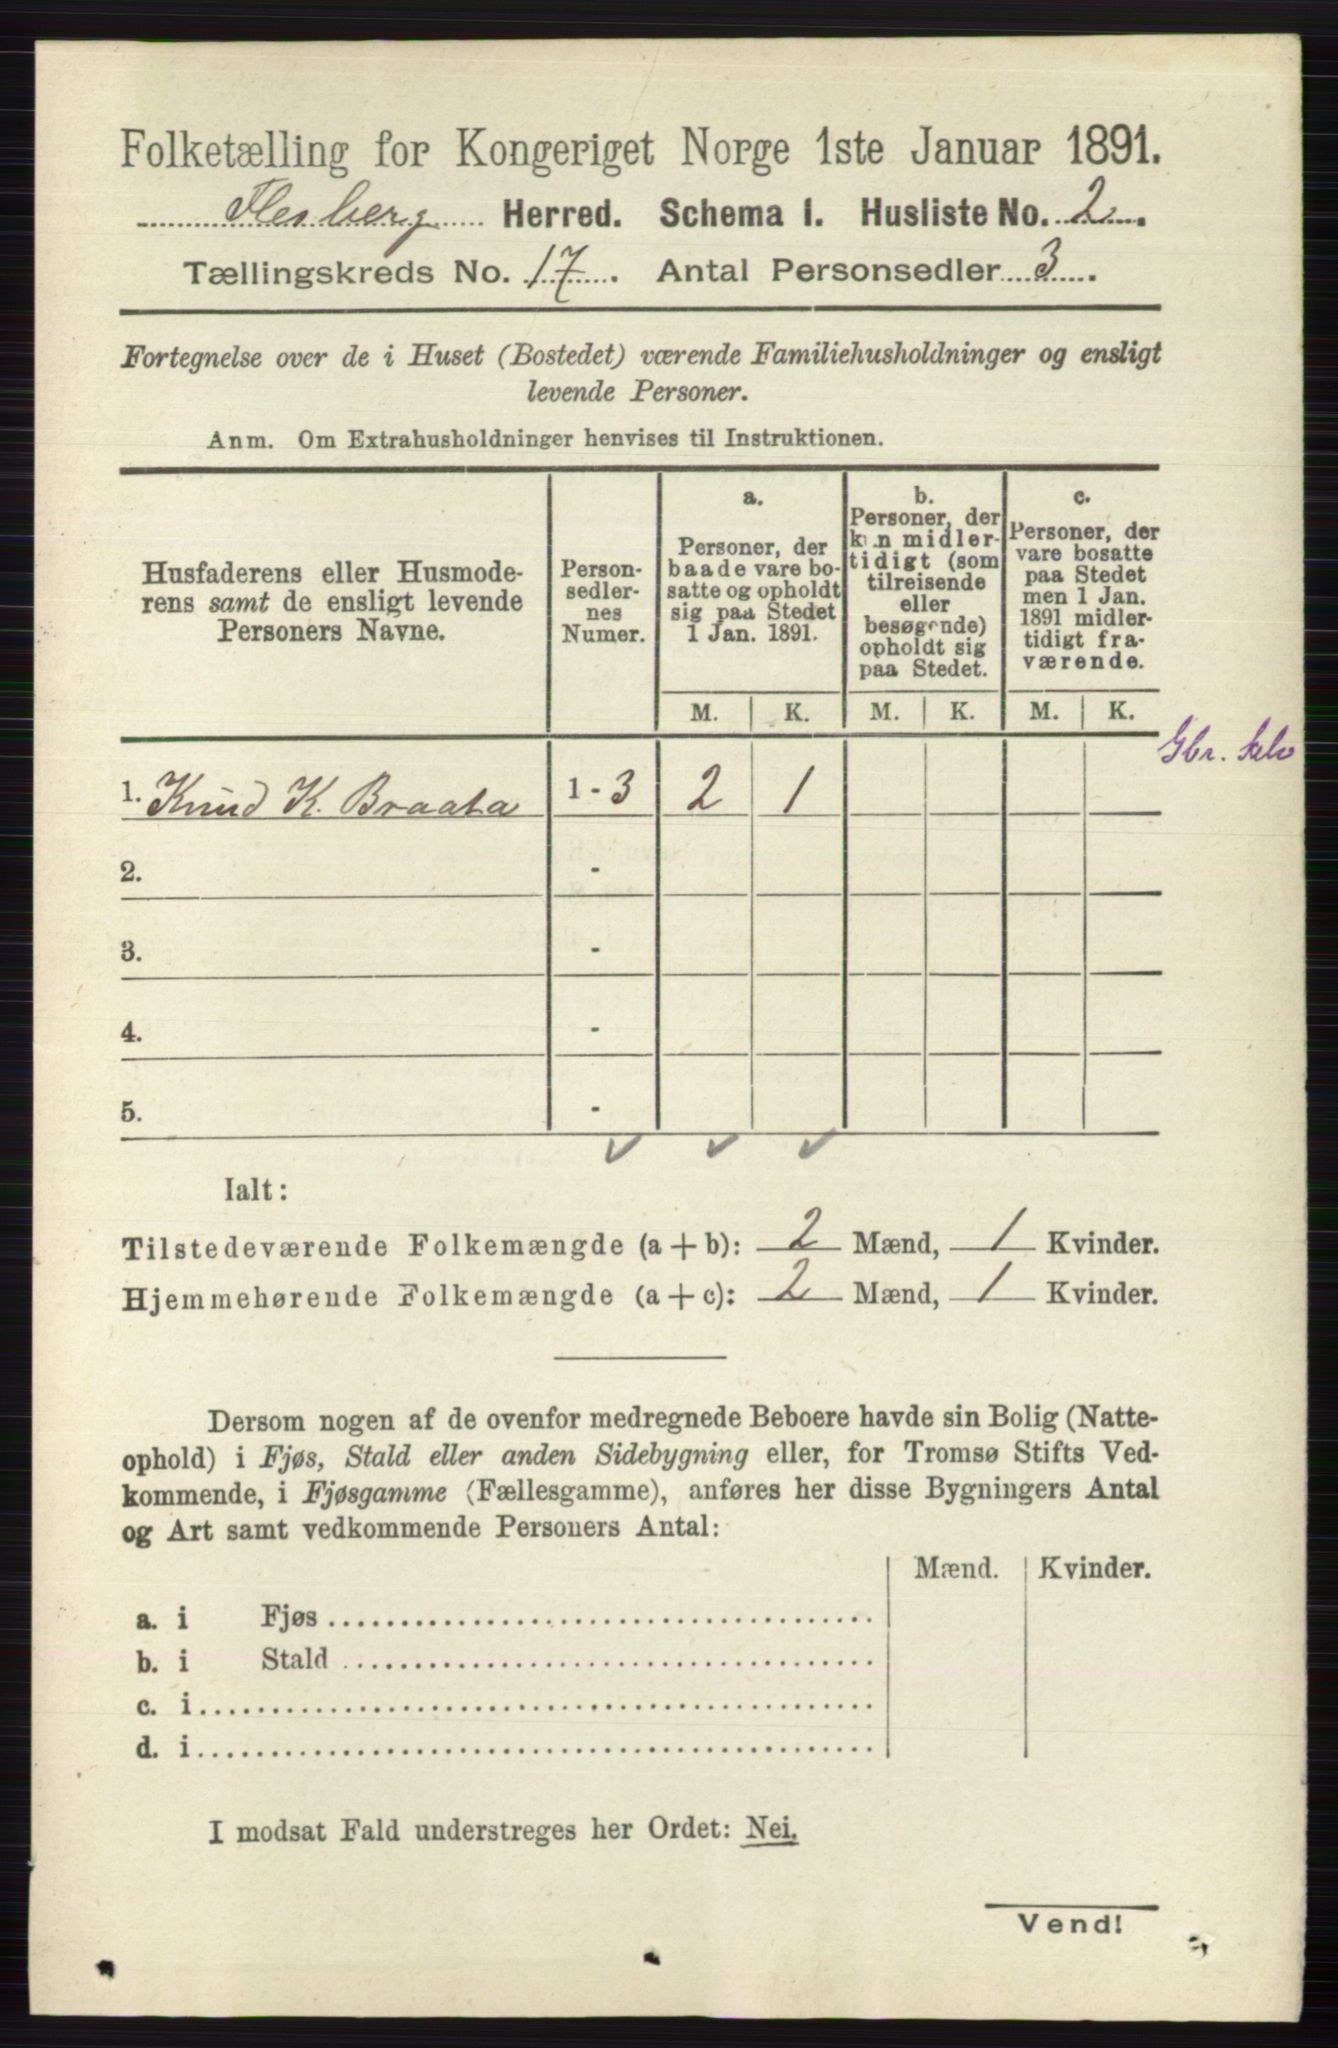 Folketælling for Kongeriget Norge 1ste Januar 1891.
Flesberg Herred. Schema I. Husliste No. 2.
Tællingskreds No. 17. Antal Personsedler 3.
Fortegnelse over de i Huset (Bostedet) værende Familiehusholdninger og ensligt
levende Personer.
Anm. Om Extrahusholdninger henvises til Instruktionen.
Husfaderens eller Husmode-
rens samt de ensligt levende
Personers Navne.
Person-
sedler-
nes
Numer.
a.
Personer, der
baade vare bo-
satte og opholdt
sig paa Stedet
1 Jan. 1891.
b.
Personer, der
kun midler-
tidigt (som
tilreisende
eller
besøgende)
opholdt sig
paa Stedet.
c.
Personer, der
vare bosatte
paa Stedet
men 1 Jan.
1891 midler-
tidigt fra-
værende.
M. K. M. K. M. K.
Gbr. Selv
1. Knud K. Braata 1 - 3 2 1
2. -
3. -
4. -
5. -
Ialt:
Tilstedeværende Folkemængde (a + b): 2 Mænd, 1 Kvinder.
Hjemmehørende Folkemængde (a + c): 2 Mænd, 1 Kvinder.
Dersom nogen af de ovenfor medregnede Beboere havde sin Bolig (Natte-
ophold) i Fjøs, Stald eller anden Sidebygning eller, for Tromsø Stifts Ved-
kommende, i Fjøsgamme (Fællesgamme), anføres her disse Bygningers Antal
og Art samt vedkommende Personers Antal:
Mænd. Kvinder.
a. i Fjøs
b. i Stald
c. i
d. i
I modsat Fald understreges her Ordet: Nei.
Vend!